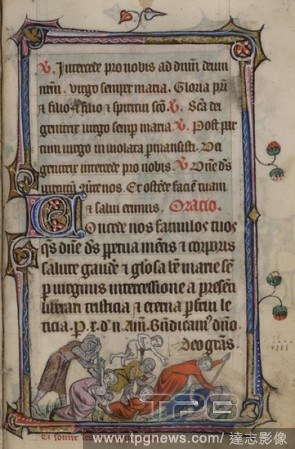 ℣. Intercede pro nobis ad dnm deum
nrm. virgo semper maria. Gloria pri
et filio et filio et spiritui sco ℣. Sca dei
genitrix virgo semp maria ℣. Post par
tum virgo inviolata permansisti. Dei
genitrix intercede pro nobis. ℣. Dne ds
virtutum converte nos. Et ostende faciem tuam
et salvi erimus. Oratio.
Concede nos famulos tuos
qs dne ds perpetua mentis et corporis
salute gaudere et gloriosa be marie sem
per virginis intercessione a presenti
liberari tristicia et eterna perfrui le
ticia. P. x. d. n. Am. Benedicamus dno.
Deo gras.
TPG
www.tpgnews.com/ 達志影像